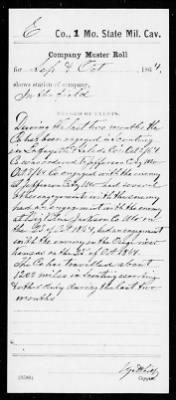 E Co., 1 Mo. State Mil. Cav.
Company Muster Roll
for Sept & Oct, 1864.
shows station of company,
In the field
RECORD OF EVENTS.
During the last two months the
Co. has been engaged in scouting
in Lafayette & Saline Co's Oct 2/64
Co. was ordered to Jefferson City Mo
Oct 7/64 Co. engaged with the enemy
at Jefferson City Mo had several
other engagements with the enemy
had an engagement with the enemy
at Big Blue Jackson Co Mo on
the 23 of Oct 1864, had an engagement
with the enemy on the Osage river
Kansas on the 25 of Oct 1864.
The Co. has travelled about
1200 miles in scouting escorting
& other duty during the last two
months
Copyist.